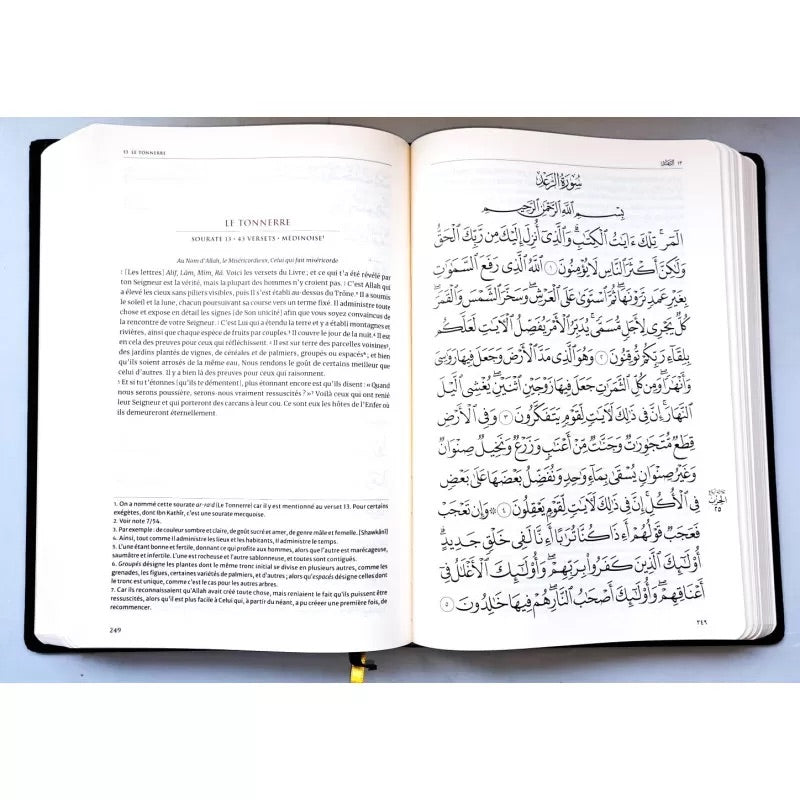 13 LE TONNERRE
LE TONNERRE
SOURATE 13 • 43 VERSETS • MÉDINOISE¹
Au Nom d'Allah, le Miséricordieux, Celui qui fait miséricorde
1 [Les lettres] Alif, Lâm, Mîm, Râ. Voici les versets du Livre ; et ce qui t'a été révélé par
ton Seigneur est la vérité, mais la plupart des hommes n'y croient pas. 2 C'est Allah qui
a élevé les cieux sans piliers visibles, puis Il s'est établi au-dessus du Trône. Il a soumis
le soleil et la lune, chacun poursuivant sa course vers un terme fixé. Il administre toute
chose et expose en détail les signes [de Son unicité] afin que vous soyez convaincus de
la rencontre de votre Seigneur. 3 C'est Lui qui a étendu la terre et y a établi montagnes et
rivières, ainsi que chaque espèce de fruits par couples³. Il couvre le jour de la nuit⁴. Il y est
en cela des preuves pour ceux qui réfléchissent. 4 Il est sur terre des parcelles voisines⁵,
des jardins plantés de vignes, de céréales et de palmiers, groupés ou espacés⁶, et bien
qu'ils soient arrosés de la même eau, Nous rendons le goût de certains meilleur que
celui d'autres. Il y a bien là des preuves pour ceux qui raisonnent.
5 Et si tu t'étonnes [qu'ils te démentent], plus étonnant encore est qu'ils disent : « Quand
nous serons poussière, serons-nous vraiment ressuscités ? »⁷ Voilà ceux qui ont renié
leur Seigneur et qui porteront des carcans à leur cou. Ce sont eux les hôtes de l'Enfer où
ils demeureront éternellement.
1. On a nommé cette sourate ar-ra'd (Le Tonnerre) car il y est mentionné au verset 13. Pour certains
exégètes, dont Ibn Kathîr, c'est une sourate mecquoise.
2. Voir note 7/54.
3. Par exemple : de couleur sombre et claire, de goût sucré et amer, de genre mâle et femelle. [Shawkânî]
4. Ainsi, tout comme Il administre les lieux et les habitants, Il administre le temps.
5. L'une étant bonne et fertile, donnant ce qui profite aux hommes, alors que l'autre est marécageuse,
saumâtre et infertile. L'une est rocheuse et l'autre sablonneuse, et toutes sont contiguës.
6. Groupés désigne les plantes dont le même tronc initial se divise en plusieurs autres, comme les
grenades, les figues, certaines variétés de palmiers, et d'autres ; alors qu'espacés désigne celles dont
le tronc est unique, comme c'est le cas pour les autres arbres.
7. Car ils reconnaissaient qu'Allah avait créé toute chose, mais reniaient le fait qu'ils puissent être
ressuscités, alors qu'il est plus facile à Celui qui, à partir du néant, a pu créer une première fois, de
recommencer.
249
١٣ الرعد
سُورَةُ الرَّعْدِ
بِسْمِ ٱللَّهِ ٱلرَّحْمَٰنِ ٱلرَّحِيمِ
الٓمٓر ۚ تِلْكَ ءَايَٰتُ ٱلْكِتَٰبِ ۗ وَٱلَّذِىٓ أُنزِلَ إِلَيْكَ مِن رَّبِّكَ ٱلْحَقُّ
وَلَٰكِنَّ أَكْثَرَ ٱلنَّاسِ لَا يُؤْمِنُونَ ١ ٱللَّهُ ٱلَّذِى رَفَعَ ٱلسَّمَٰوَٰتِ
بِغَيْرِ عَمَدٍ تَرَوْنَهَا ۖ ثُمَّ ٱسْتَوَىٰ عَلَى ٱلْعَرْشِ ۖ وَسَخَّرَ ٱلشَّمْسَ وَٱلْقَمَرَ ۖ
كُلٌّ يَجْرِى لِأَجَلٍ مُّسَمًّى ۚ يُدَبِّرُ ٱلْأَمْرَ يُفَصِّلُ ٱلْءَايَٰتِ لَعَلَّكُم
بِلِقَآءِ رَبِّكُمْ تُوقِنُونَ ٢ وَهُوَ ٱلَّذِى مَدَّ ٱلْأَرْضَ وَجَعَلَ فِيهَا رَوَٰسِىَ
وَأَنْهَٰرًا ۖ وَمِن كُلِّ ٱلثَّمَرَٰتِ جَعَلَ فِيهَا زَوْجَيْنِ ٱثْنَيْنِ ۖ يُغْشِى ٱلَّيْلَ
ٱلنَّهَارَ ۚ إِنَّ فِى ذَٰلِكَ لَءَايَٰتٍ لِّقَوْمٍ يَتَفَكَّرُونَ ٣ وَفِى ٱلْأَرْضِ
قِطَعٌ مُّتَجَٰوِرَٰتٌ وَجَنَّٰتٌ مِّنْ أَعْنَٰبٍ وَزَرْعٌ وَنَخِيلٌ صِنْوَانٌ
وَغَيْرُ صِنْوَانٍ يُسْقَىٰ بِمَآءٍ وَٰحِدٍ وَنُفَضِّلُ بَعْضَهَا عَلَىٰ بَعْضٍ
فِى ٱلْأُكُلِ ۚ إِنَّ فِى ذَٰلِكَ لَءَايَٰتٍ لِّقَوْمٍ يَعْقِلُونَ ٤ ۞ وَإِن تَعْجَبْ
فَعَجَبٌ قَوْلُهُمْ أَءِذَا كُنَّا تُرَٰبًا أَءِنَّا لَفِى خَلْقٍ جَدِيدٍ ۗ
أُو۟لَٰٓئِكَ ٱلَّذِينَ كَفَرُوا۟ بِرَبِّهِمْ ۖ وَأُو۟لَٰٓئِكَ ٱلْأَغْلَٰلُ فِىٓ
أَعْنَاقِهِمْ ۖ وَأُو۟لَٰٓئِكَ أَصْحَٰبُ ٱلنَّارِ ۖ هُمْ فِيهَا خَٰلِدُونَ ٥
الحزب
٢٥
٢٤٩